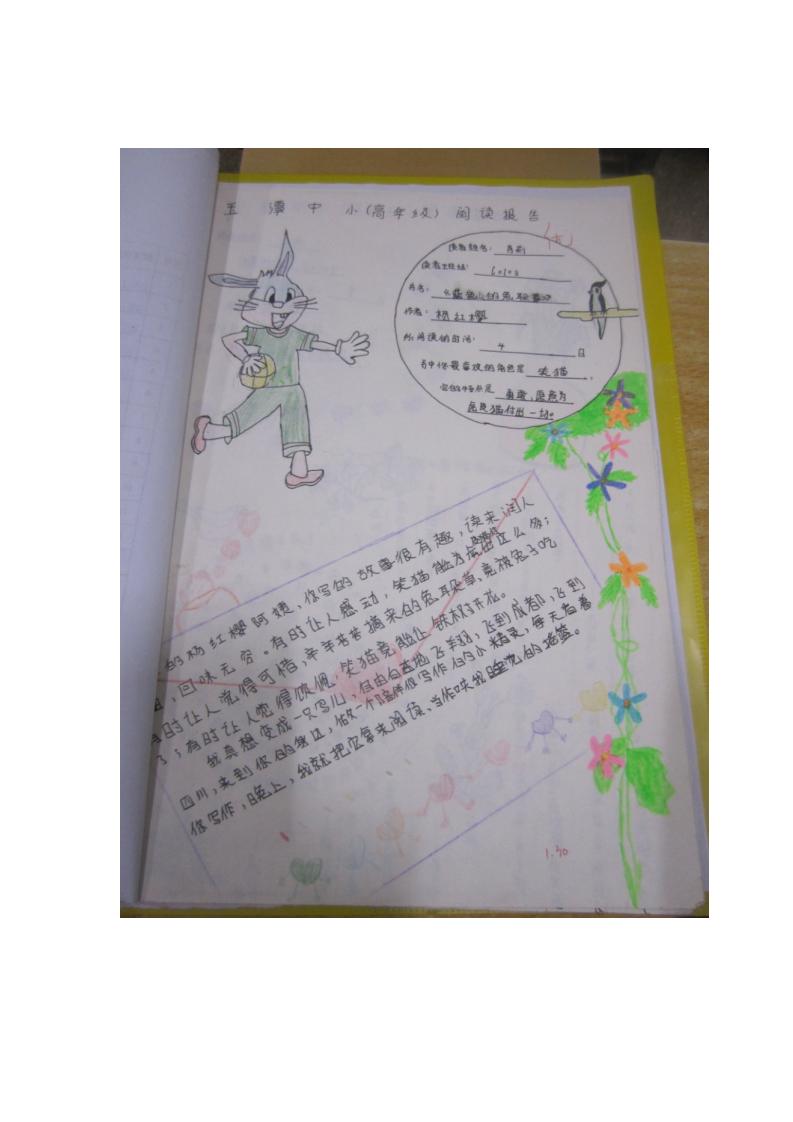 玉潭中小(高年级)阅读报告
(优)
读者姓名: 肖莉
读者班级:
书名: 《蓝色的兔耳朵草》
作者: 杨红樱
所阅读的时间: 4 日
书中你最喜欢的角色是 笑猫,
它的特点是 勇敢,愿意为
虎皮猫付出一切。
的杨红樱阿姨,你写的故事很有趣,读来润人
,回味无穷。有时让人感动,笑猫能为虎皮猫付出这么多;
有时让人觉得可惜,辛辛苦苦摘来的兔耳朵草,竟被兔子吃
了;有时让人觉得佩服,笑猫竟能让铁树开花。
我真想变成一只鸟儿,自由自在地飞翔,飞到成都,飞到
四川,来到你的身边,做一个陪伴你写作的小精灵,每天看着
你写作,晚上,我就把它拿来阅读、当作哄我睡觉的摇篮。
1.30